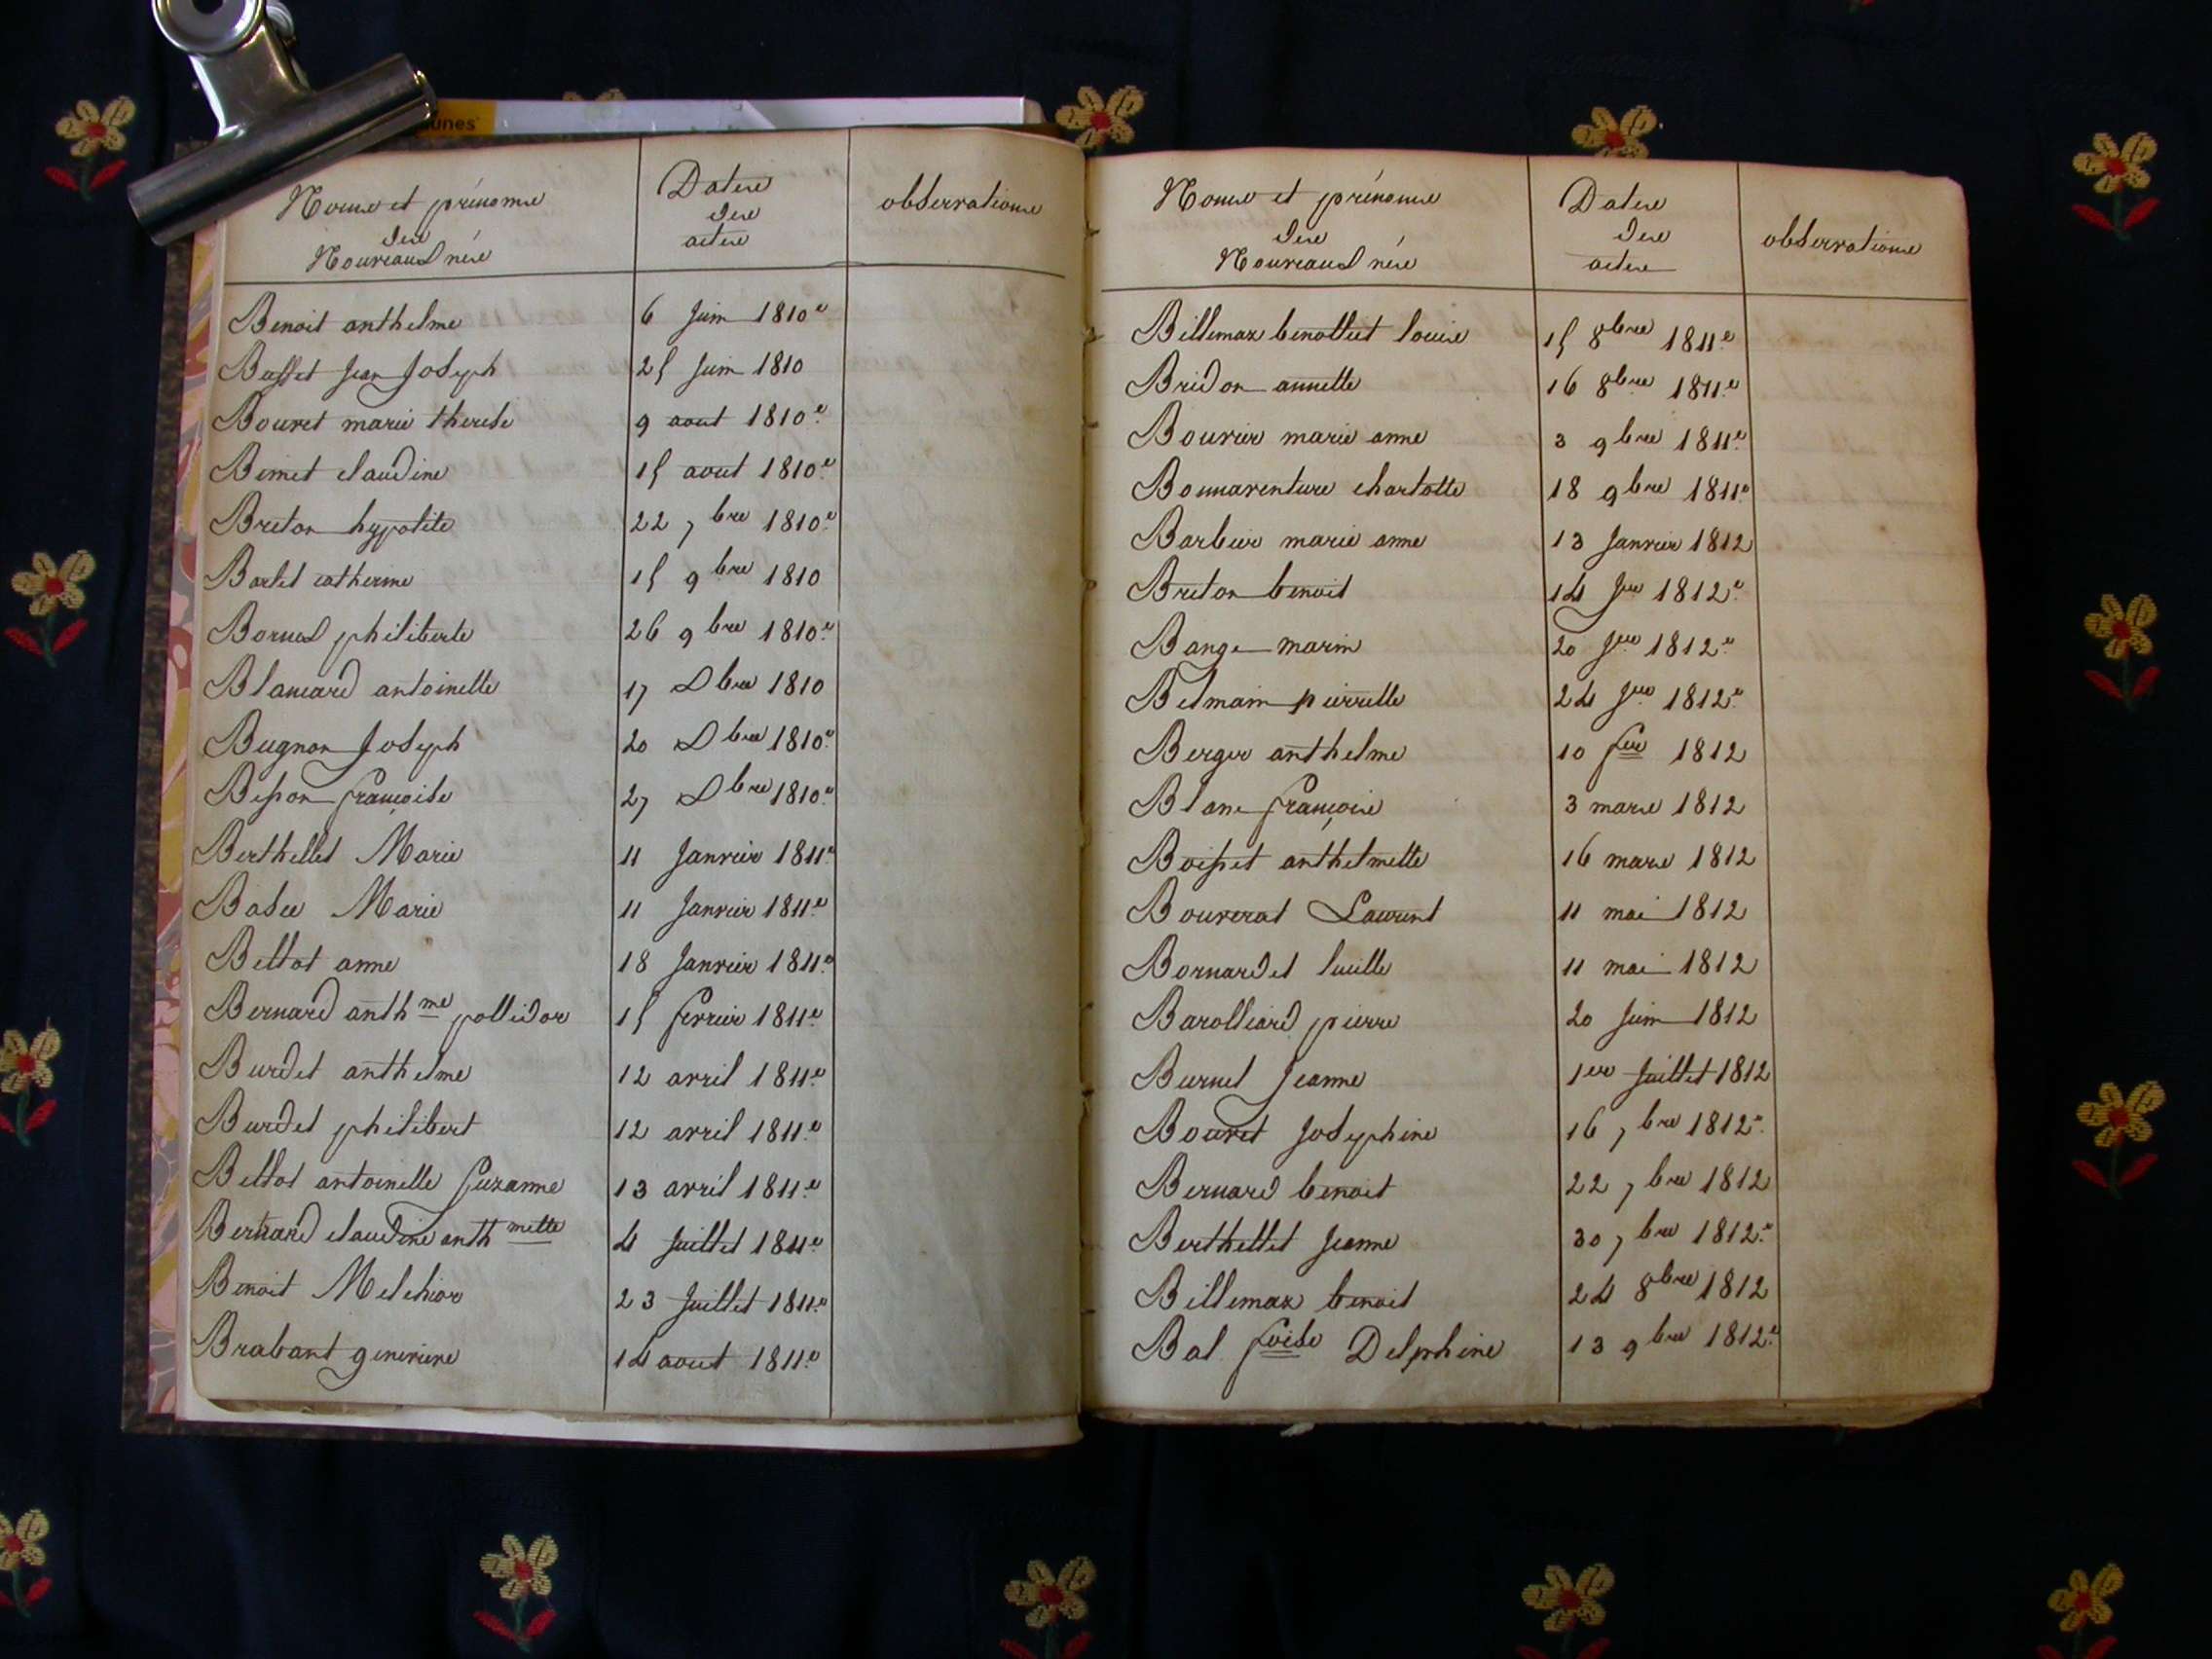 unes
Noms et prénoms
des
Nouveaux nés
Dates
des
actes
observations
Benoit anthelme 6 Juin 1810
Buffet Jean Joseph 25 Juin 1810
Bouvet marie therese 9 aout 1810
Bimet claudine 15 aout 1810
Breton hypolite 22 7bre 1810
Barlet catherine 15 9bre 1810
Bornes philiberte 26 9bre 1810
Blancard antoinette 17 Dbre 1810
Bugnon Joseph 20 Dbre 1810
Besson françoise 27 Dbre 1810
Berthellet Marie 11 Janvier 1811
Marie 11 Janvier 1811
Bettot anne 18 Janvier 1811
Bernard anthme pollidor 15 fevrier 1811
Burdet anthelme 12 avril 1811
Burdet philibert 12 avril 1811
Bettot antoinette Suzanne 13 avril 1811
Bernard claudine anthmette 4 Juillet 1811
Benoit Melchior 23 Juillet 1811
Brabant genevieve 14 aout 1811
Noms et prénoms
des
Nouveaux nés
Dates
des
actes
observations
Billemaz benottiet louise 15 8bre 1811
Bridon annette 16 8bre 1811
Bouvier marie anne 3 9bre 1811
Bonnaventure charlotte 18 9bre 1811
Barbier marie anne 13 Janvier 1812
Breton benoit 14 Jer 1812
Bange marin 20 Jer 1812
Belmain pierrette 24 Jer 1812
Berger anthelme 10 fer 1812
Blanc françois 3 mars 1812
Boisset anthelmette 16 mars 1812
Bouverat Laurent 11 mai 1812
Bornardet lucille 11 mai 1812
Barolliard pierre 20 Juin 1812
Burnet Jeanne 1er Juillet 1812
Bouvet Josephine 16 7bre 1812
Bernard benoit 22 7bre 1812
Berthellet Jeanne 30 7bre 1812
Billemaz benoit 24 8bre 1812
Bal foise Delphine 13 9bre 1812